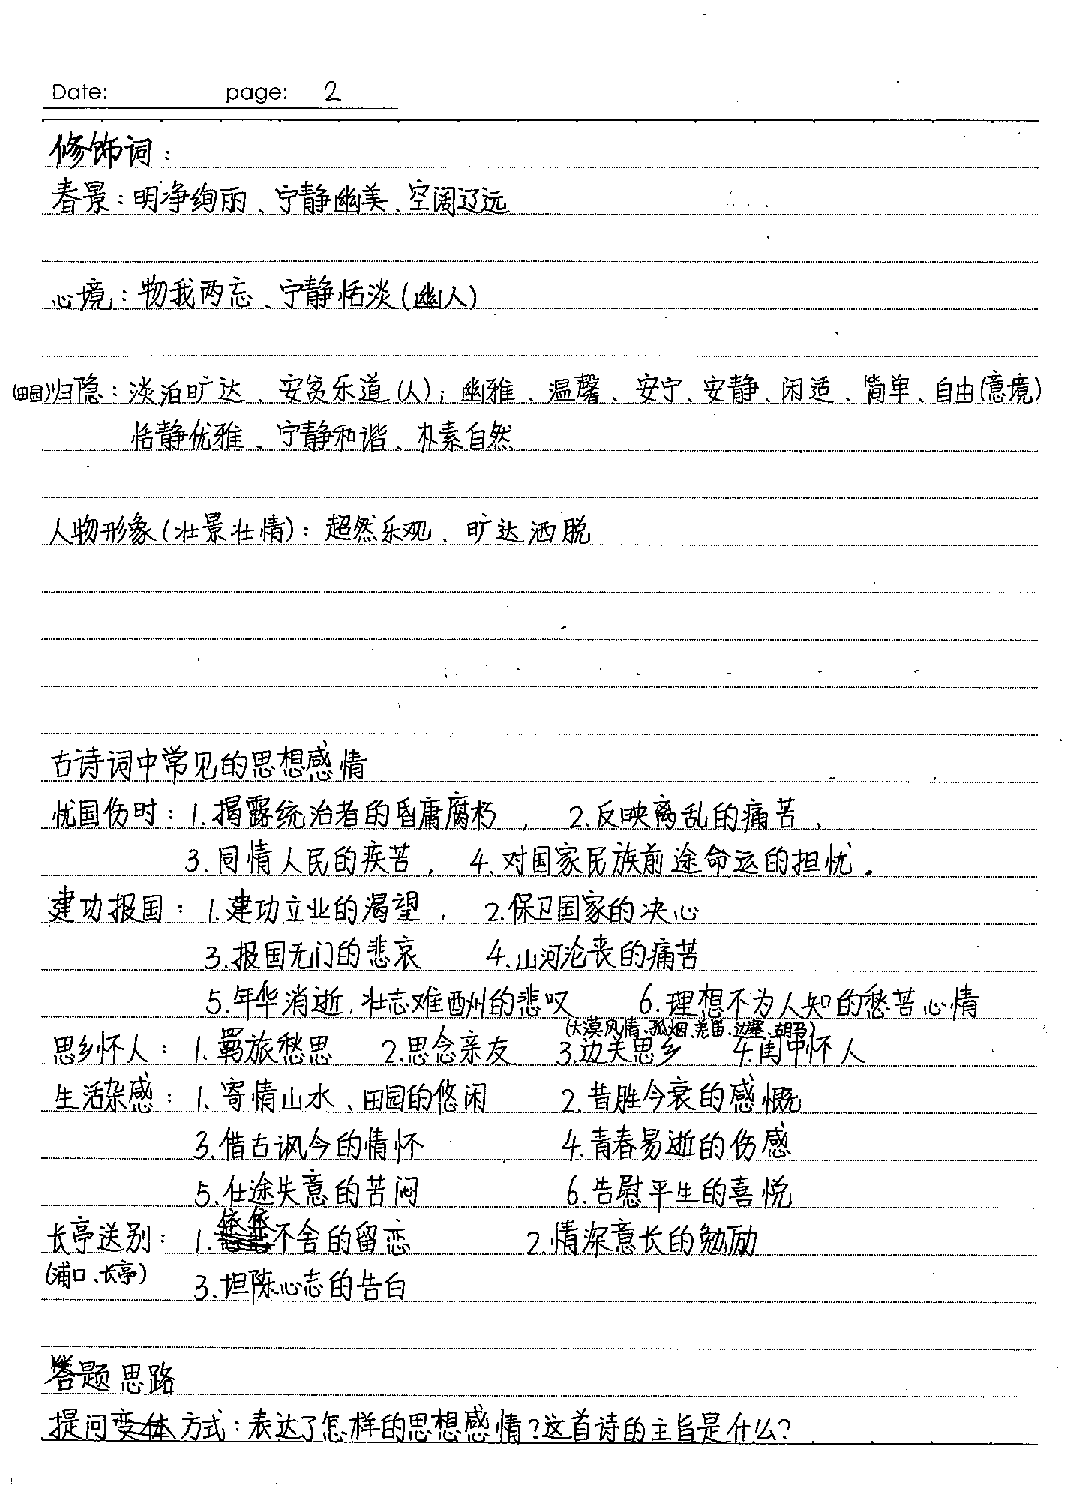 Date: page: 2
修饰词：
春景：明净绚丽、宁静幽美、空阔辽远
心境：物我两忘、宁静恬淡(幽人)
(田园)归隐：淡泊旷达、安贫乐道(人)；幽雅、温馨、安宁、安静、闲适、简单、自由(意境)
恬静优雅、宁静和谐、朴素自然
人物形象(壮景壮情)：超然乐观、旷达洒脱
古诗词中常见的思想感情
忧国伤时：1.揭露统治者的昏庸腐朽， 2.反映离乱的痛苦，
3.同情人民的疾苦， 4.对国家民族前途命运的担忧。
建功报国：1.建功立业的渴望， 2.保卫国家的决心
3.报国无门的悲哀 4.山河沦丧的痛苦
5.年华消逝,壮志难酬的悲叹 6.理想不为人知的愁苦心情
(大漠风情、孤烟、羌笛、边塞、胡马)
思乡怀人：1.羁旅愁思 2.思念亲友 3.边关思乡 4.闺中怀人
生活杂感：1.寄情山水、田园的悠闲 2.昔胜今衰的感慨
3.借古讽今的情怀 4.青春易逝的伤感
5.仕途失意的苦闷 6.告慰平生的喜悦
长亭送别：1.依依不舍的留恋 2.情深意长的勉励
(浦口、长亭) 3.坦陈心志的告白
答题思路
提问变体方式：表达了怎样的思想感情?这首诗的主旨是什么?